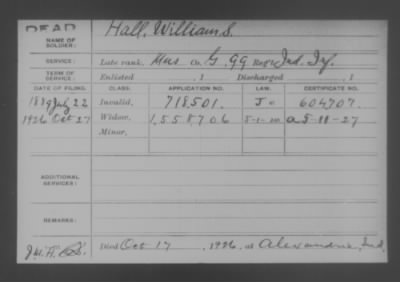 DEAD
NAME OF SOLDIER: Hall, William S.
SERVICE: Late rank, Mus. Co. G, 99 Reg't Ind. Inf.
TERM OF SERVICE: Enlisted , 1 Discharged , 1
DATE OF FILING. CLASS. APPLICATION NO. LAW. CERTIFICATE NO.
1889 July 22 Invalid, 718.501. 604707.
1926 Oct 27 Widow, 1,558,706 5-1-20 a 5-11-27
Minor,
ADDITIONAL SERVICES:
REMARKS:
Died Oct 17, 1926, at Alexandria, Ind.